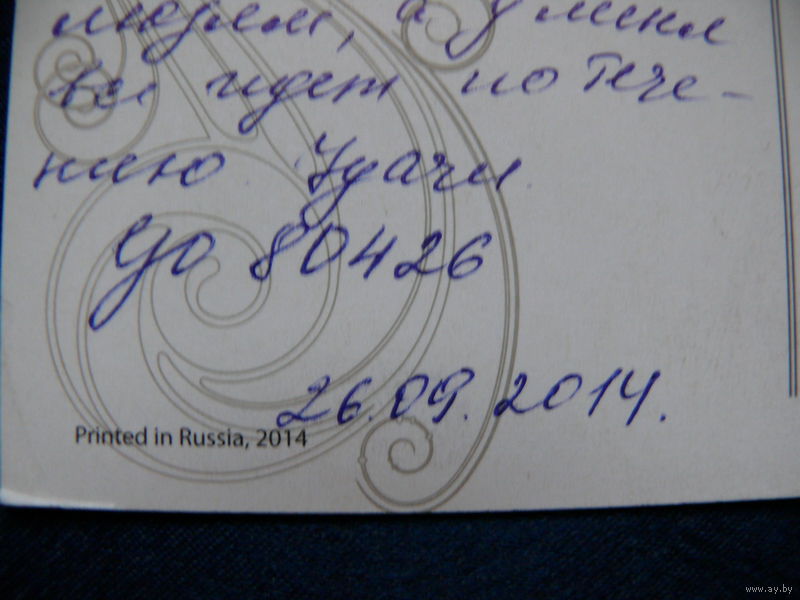 людям, а у меня
все идет по тече-
нию Удачи
до 80426
26.09.2014.
Printed in Russia, 2014
www.ay.by